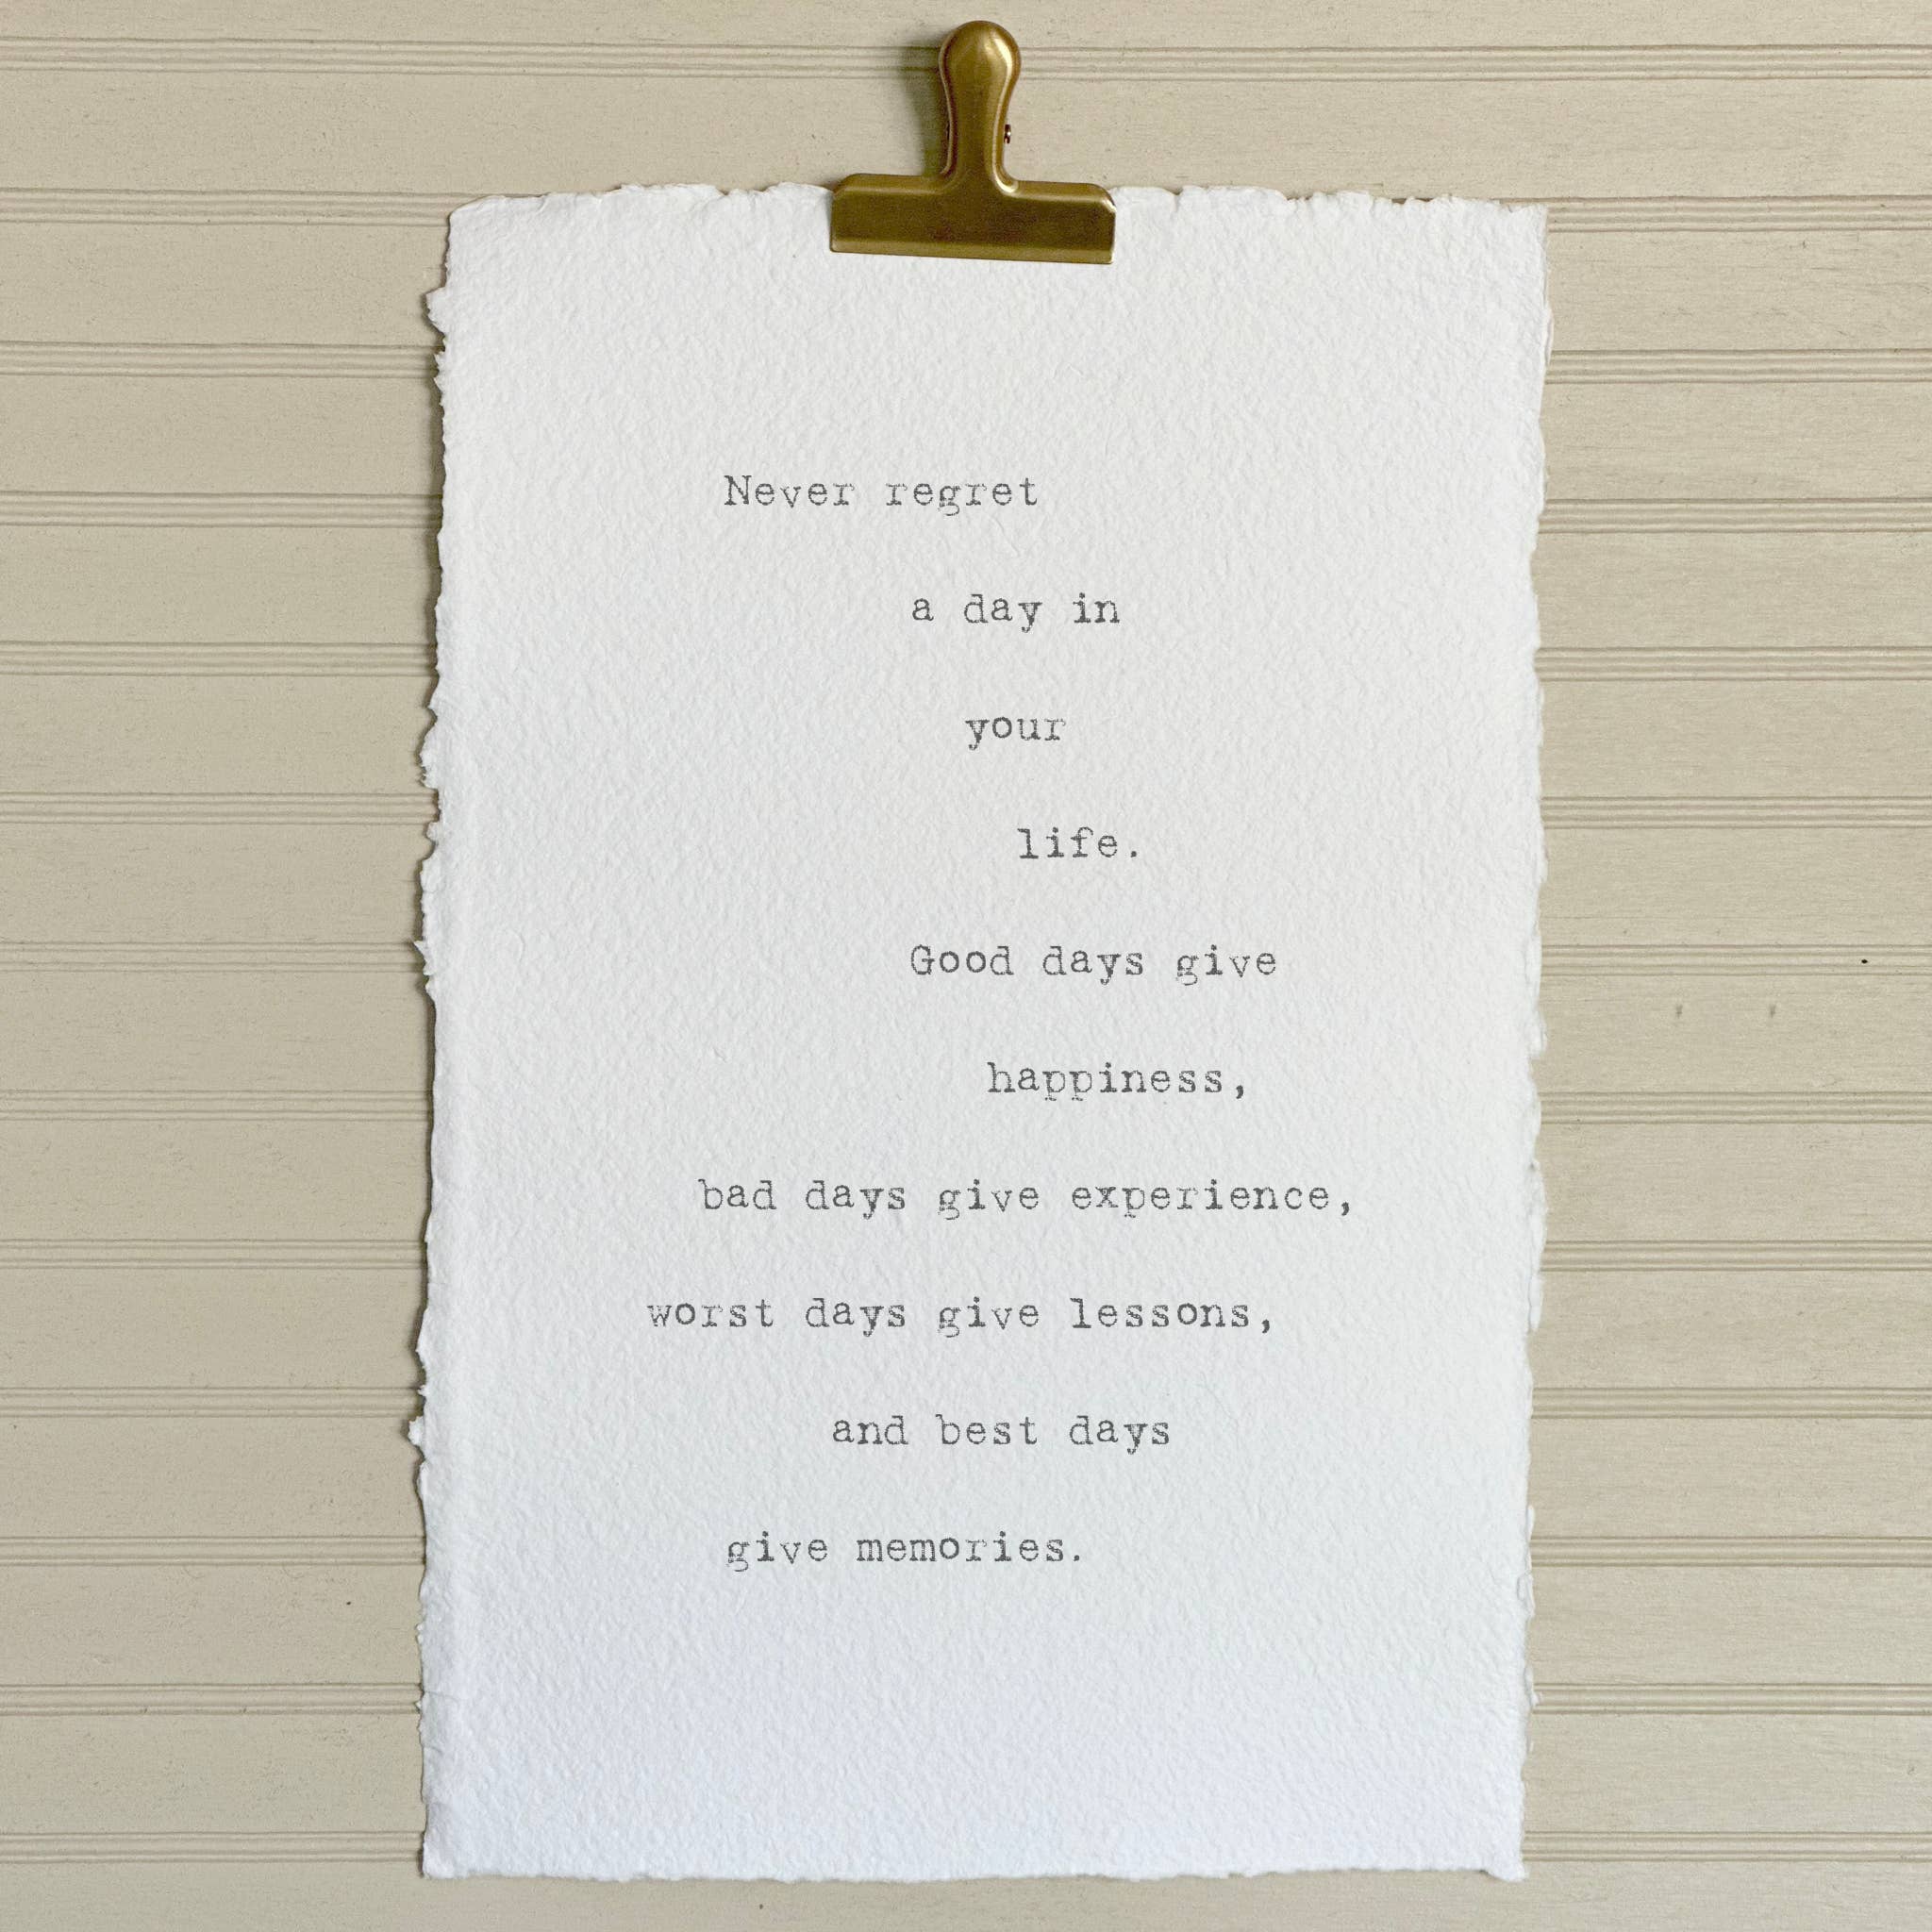 Never regret
a day in
your
life.
Good days give
happiness,
bad days give experience,
worst days give lessons,
and best days
give memories.